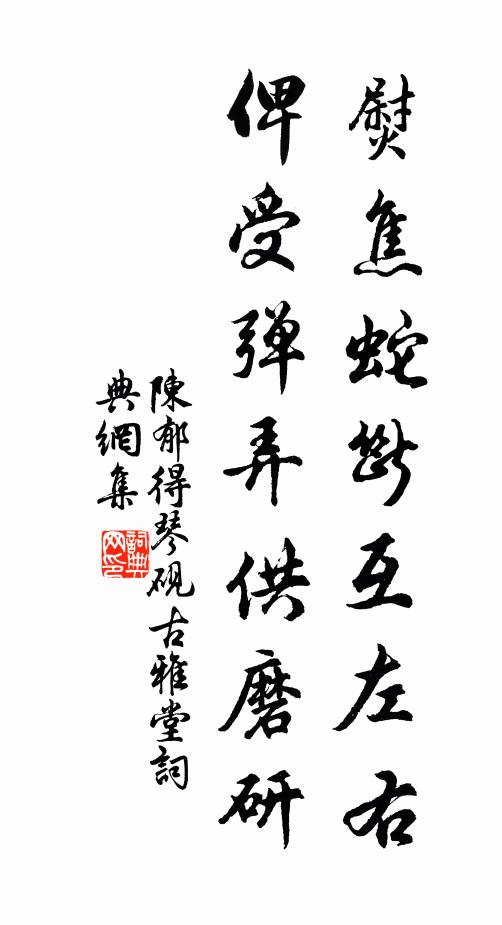 熨焦蛇斷互左右
俾受弹弄供磨研
陳郁得琴硯古雅堂詞
典網集
詞典
网印